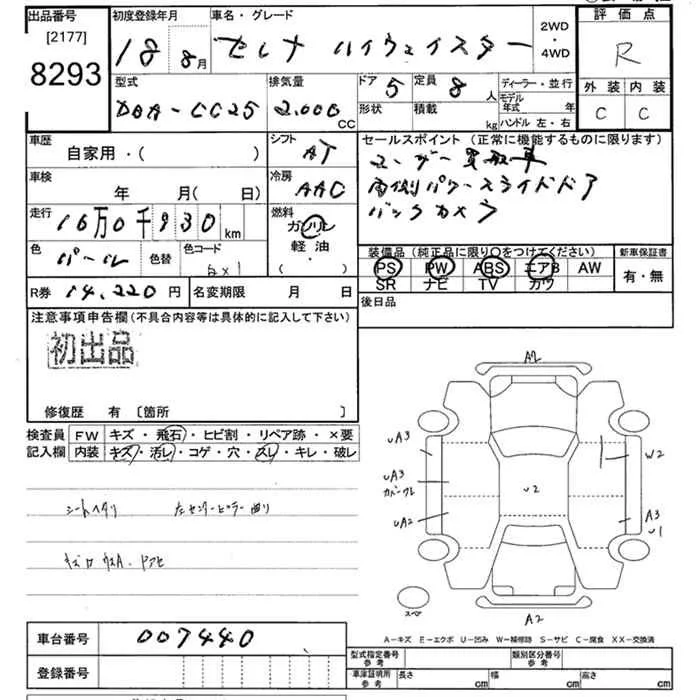 出品番号
[2177]
8293
初度登録年月
18年 8月
車名・グレード
セレナ ハイウェイスター
2WD
・
4WD
評価点
R
外装 内装
C C
型式
DBA-CC25
排気量
2.000
CC
ドア
5
形状
定員
8
人
積載
kg
ディーラー・並行
モデル
年式 年
ハンドル 左・右
車歴
自家用・( )
シフト
AT
車検
年 月(日)
冷房
AAC
走行
16万0千930 km
燃料
ガソリン
軽油・
( ・ )
色
パール
色替
色コード
R券 14,220 円
名変期限 月 日
セールスポイント(正常に機能するものに限ります)
ユーザー買取車
両側パワースライドドア
バックカメラ
装備品(純正品に限り〇をつけてください)
PS PW ABS エアB AW
SR ナビ TV カワ
新車保証書
有・無
後日品
注意事項申告欄(不具合内容等は具体的に記入して下さい)
初出品
修復歴 有 〔箇所 〕
検査員
記入欄
FW キズ・飛石・ヒビ割・リペア跡・×要
内装 キズ・汚レ・コゲ・穴・スレ・キレ・破レ
シートヘタリ 左センターピラー曲り
A2
UA3
UA3
カバーワレ
UA2
U2
W2
A3
U1
スペア
A2
A-キズ E-エクボ U-凹み W-補修跡 S-サビ C-腐食 XX-交換済
車台番号
007440
登録番号
型式指定番号
参考
類別区分番号
参考
車庫証明所
参考
長さ
cm
幅
cm
高さ
cm